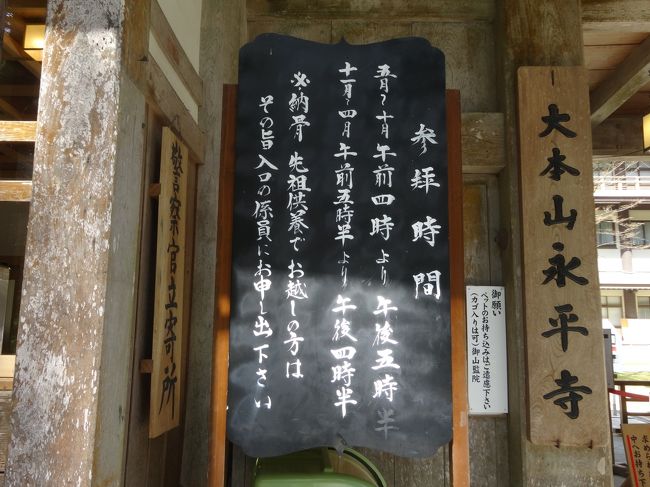 大本山永平寺
御願い
ペットのお持ち込みはご遠慮下さい
(カゴ入りは可)御山監院
参拝時間
五月〜十月午前四時より午後五時半
十一月〜四月午前五時半より午後四時半
※納骨 先祖供養でお越しの方は
その旨入口の係員にお申し出下さい
警察官立寄所